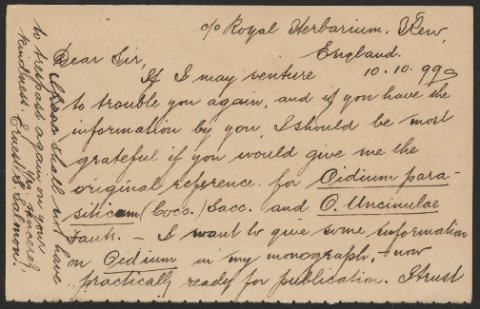 c/o Royal Herbarium, Kew,
England.
10.10.99
Dear Sir,
If I may venture
to trouble you again, and if you have the
information by you, I should be most
grateful if you would give me the
original reference for Oidium para-
siticum (Cocc.) Sacc. and O. Uncinulae
Fautr. — I want to give some information
on Oidium in my monograph, — now
practically ready for publication. I trust
I shall not have
to trespass again on your
kindness. Yrs. sincerely,
Ernest S. Salmon.